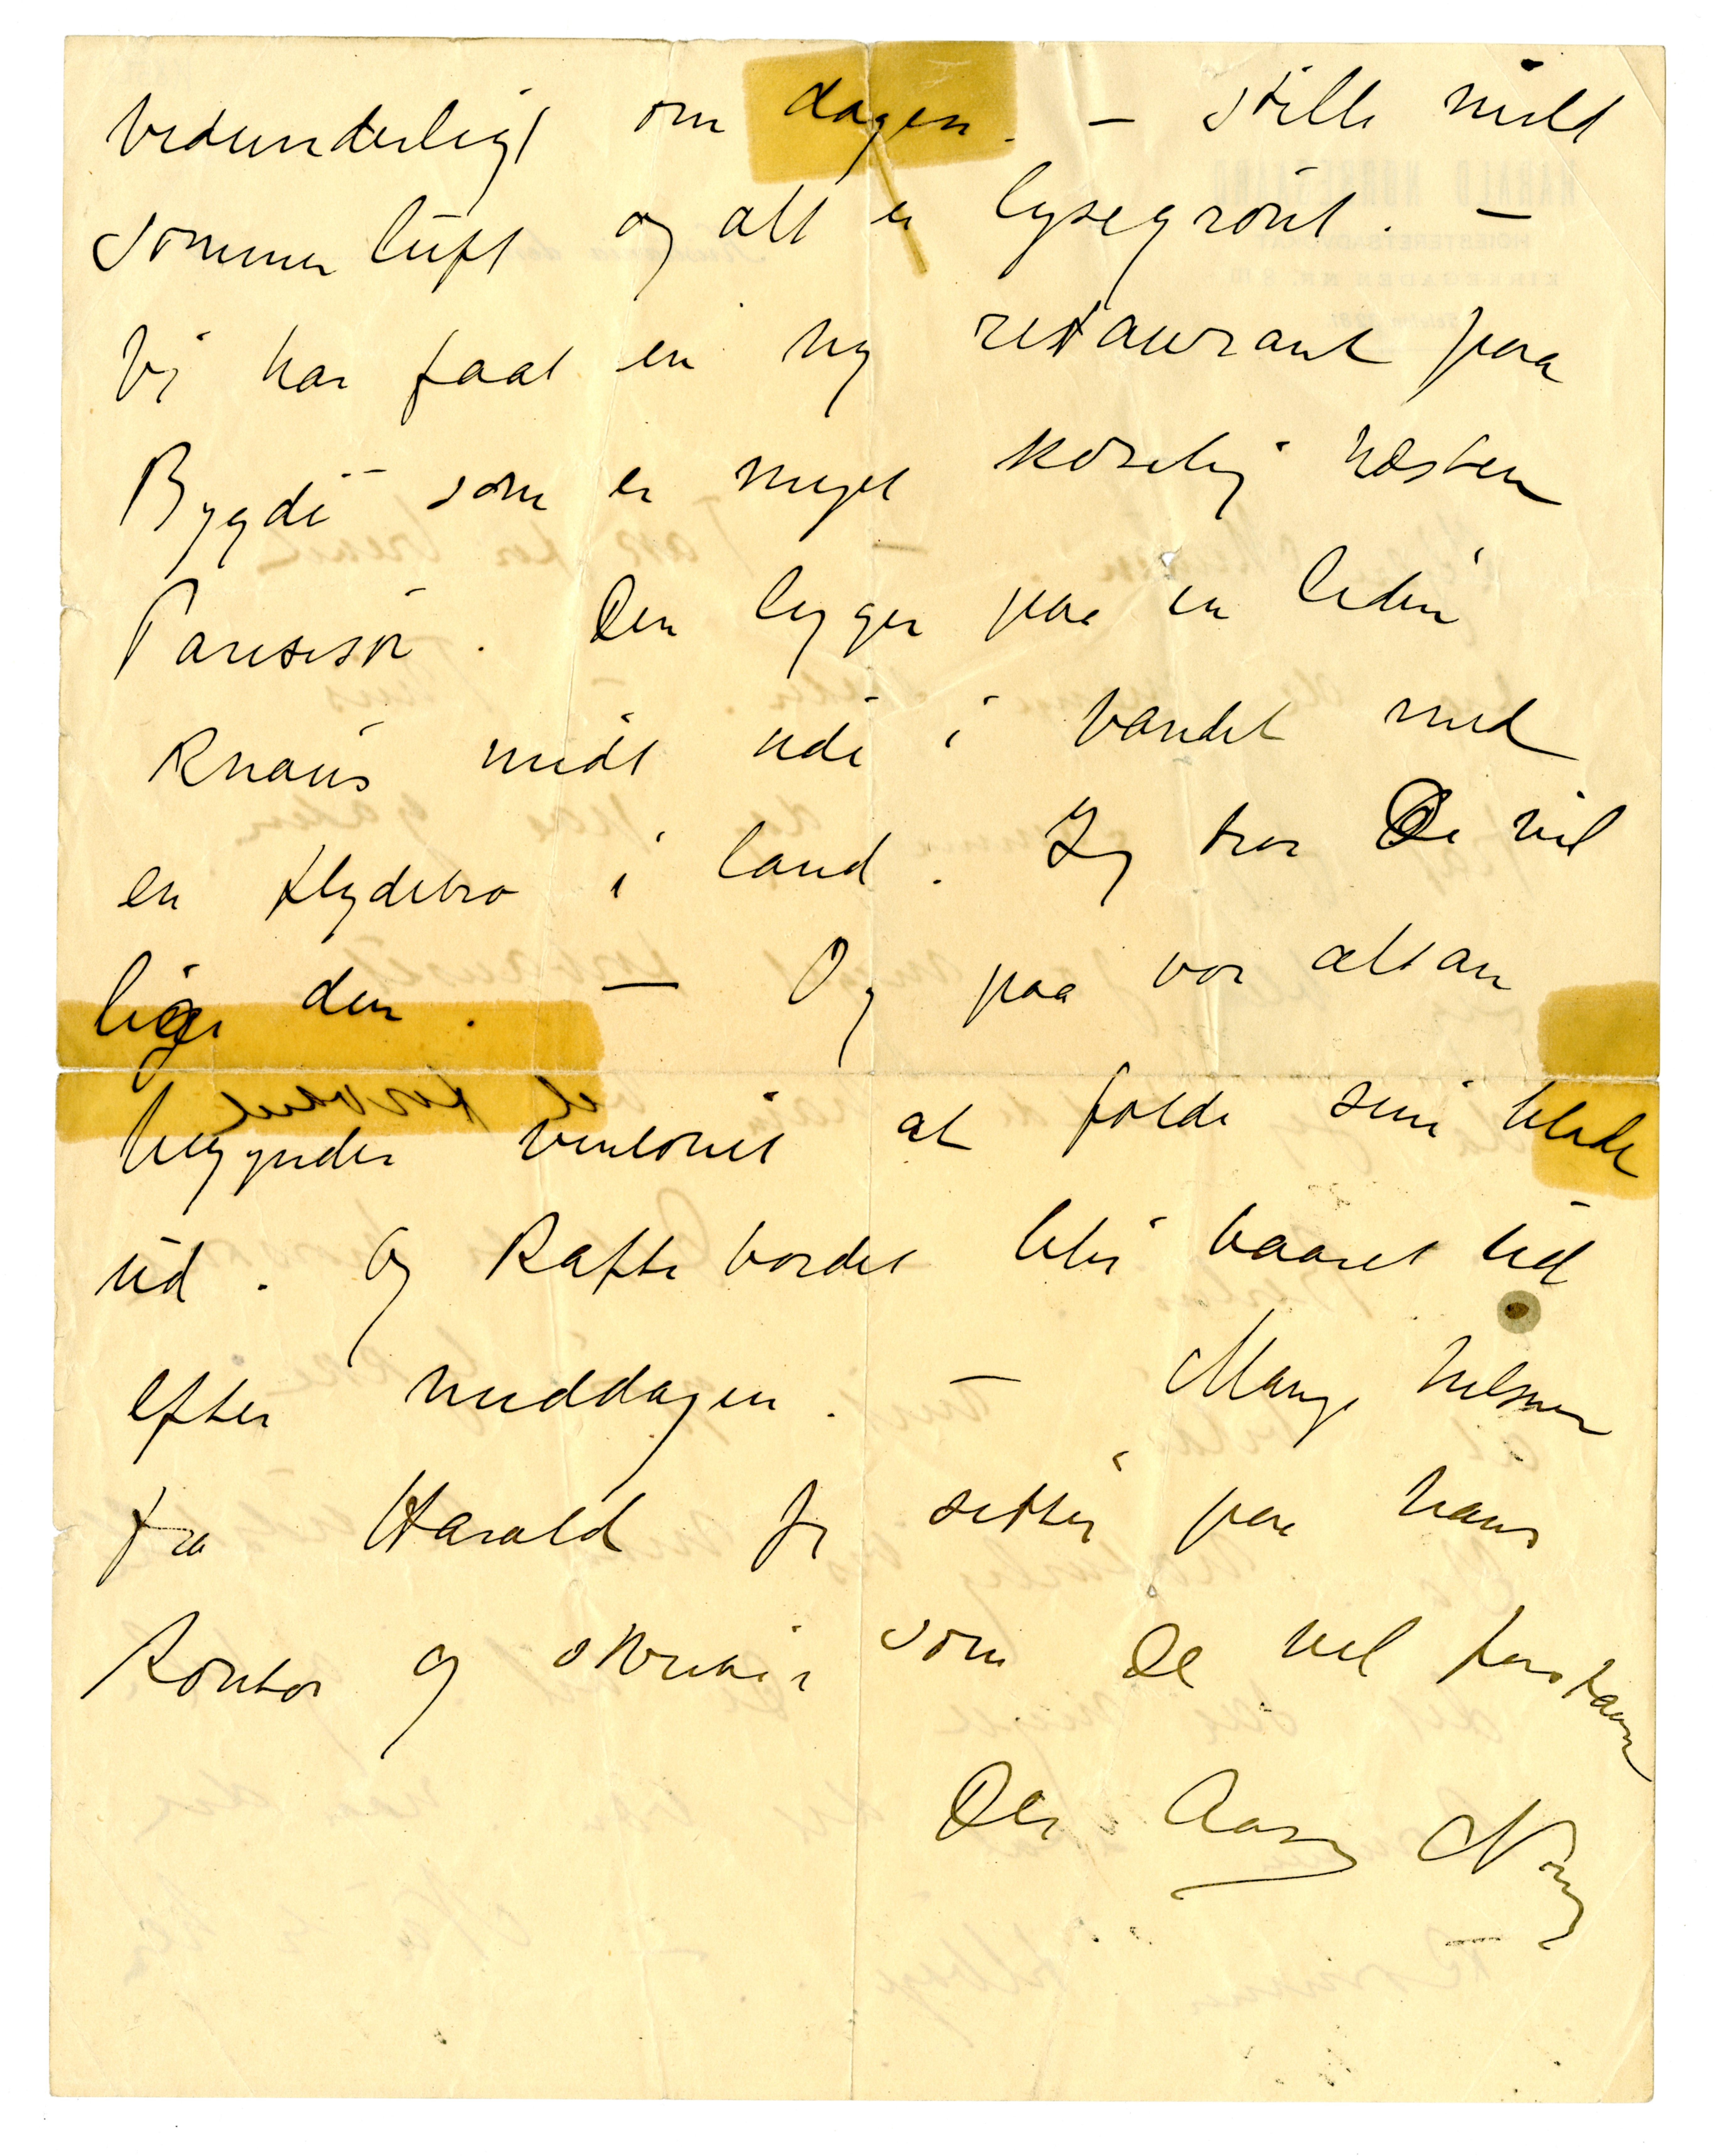 vidunderligt om dagen. – stille mild
sommerluft og alt er lysegrønt. –
Vi har faat en ny restaurant paa
Bygdö som er meget köselig næsten
Parisisk. Den ligger paa en liden
Knaus midt ude i vandet med
en flydebro i land. Jeg tror De vil
lige den. – Og paa vor altan
begynder vinløvet at folde sine blade
ud. Og Kaffe bordet blir baaret ud
efter middagen. – Mange hilsner
fra Harald Jeg sitter paa hans
Kontor og skriver som De vel forstaar
Deres Aase Nørr